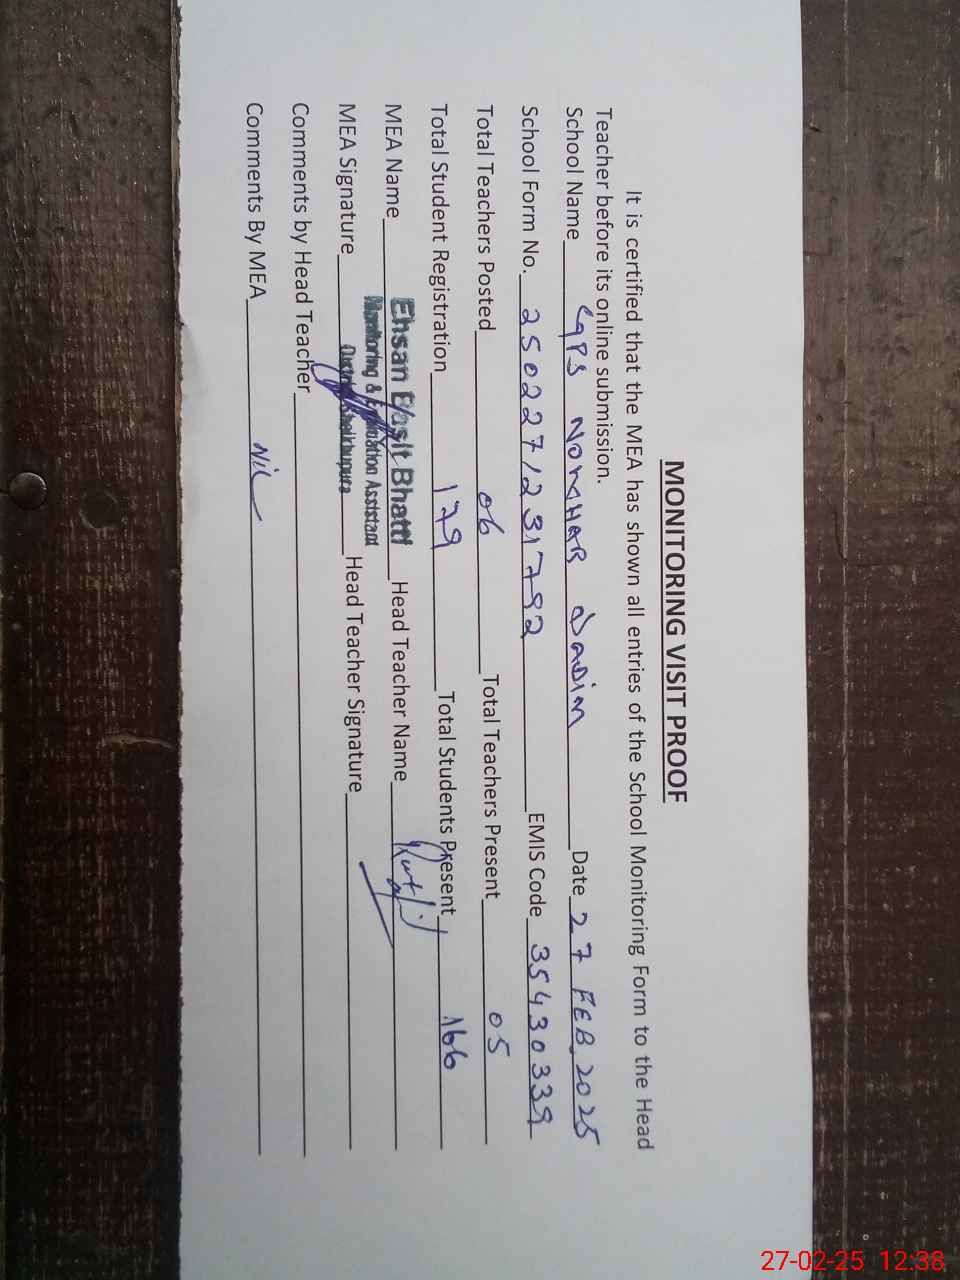 MONITORING VISIT PROOF
It is certified that the MEA has shown all entries of the School Monitoring Form to the Head
Teacher before its online submission.
School Name GPS NOMHAR Date 27 FEB. 2025
School Form No. 250227/231782 EMIS Code 35430339
Total Teachers Posted 06 Total Teachers Present 05
Total Student Registration 179 Total Students Present 166
MEA Name Ehsan Basit Bhatti Head Teacher Name
Monitoring & Evaluation Assistant
MEA Signature District Sheikhupura Head Teacher Signature
Comments by Head Teacher
Comments By MEA Nil
27-02-25 12:38